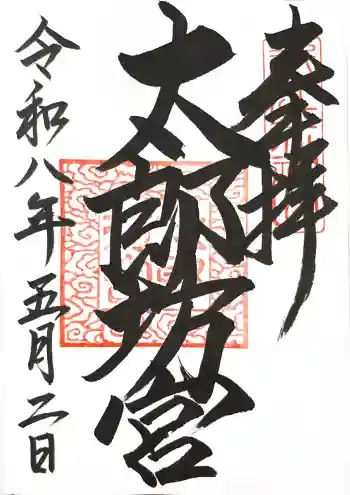 奉拝
太郎坊宮
令和八年五月二日